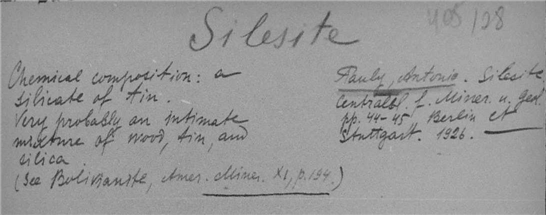 Silesite
408/28
Chemical composition: a
silicate of tin.
Very probably an intimate
mixture of wood, tin, and
silica
(See Bolivianite, Amer. Miner. XI, p.194.)
Pauly, Antonio. Silesite.
Centralbl. f. Miner. u. Geol.
pp. 44-45 Berlin
Stuttgart. 1926.